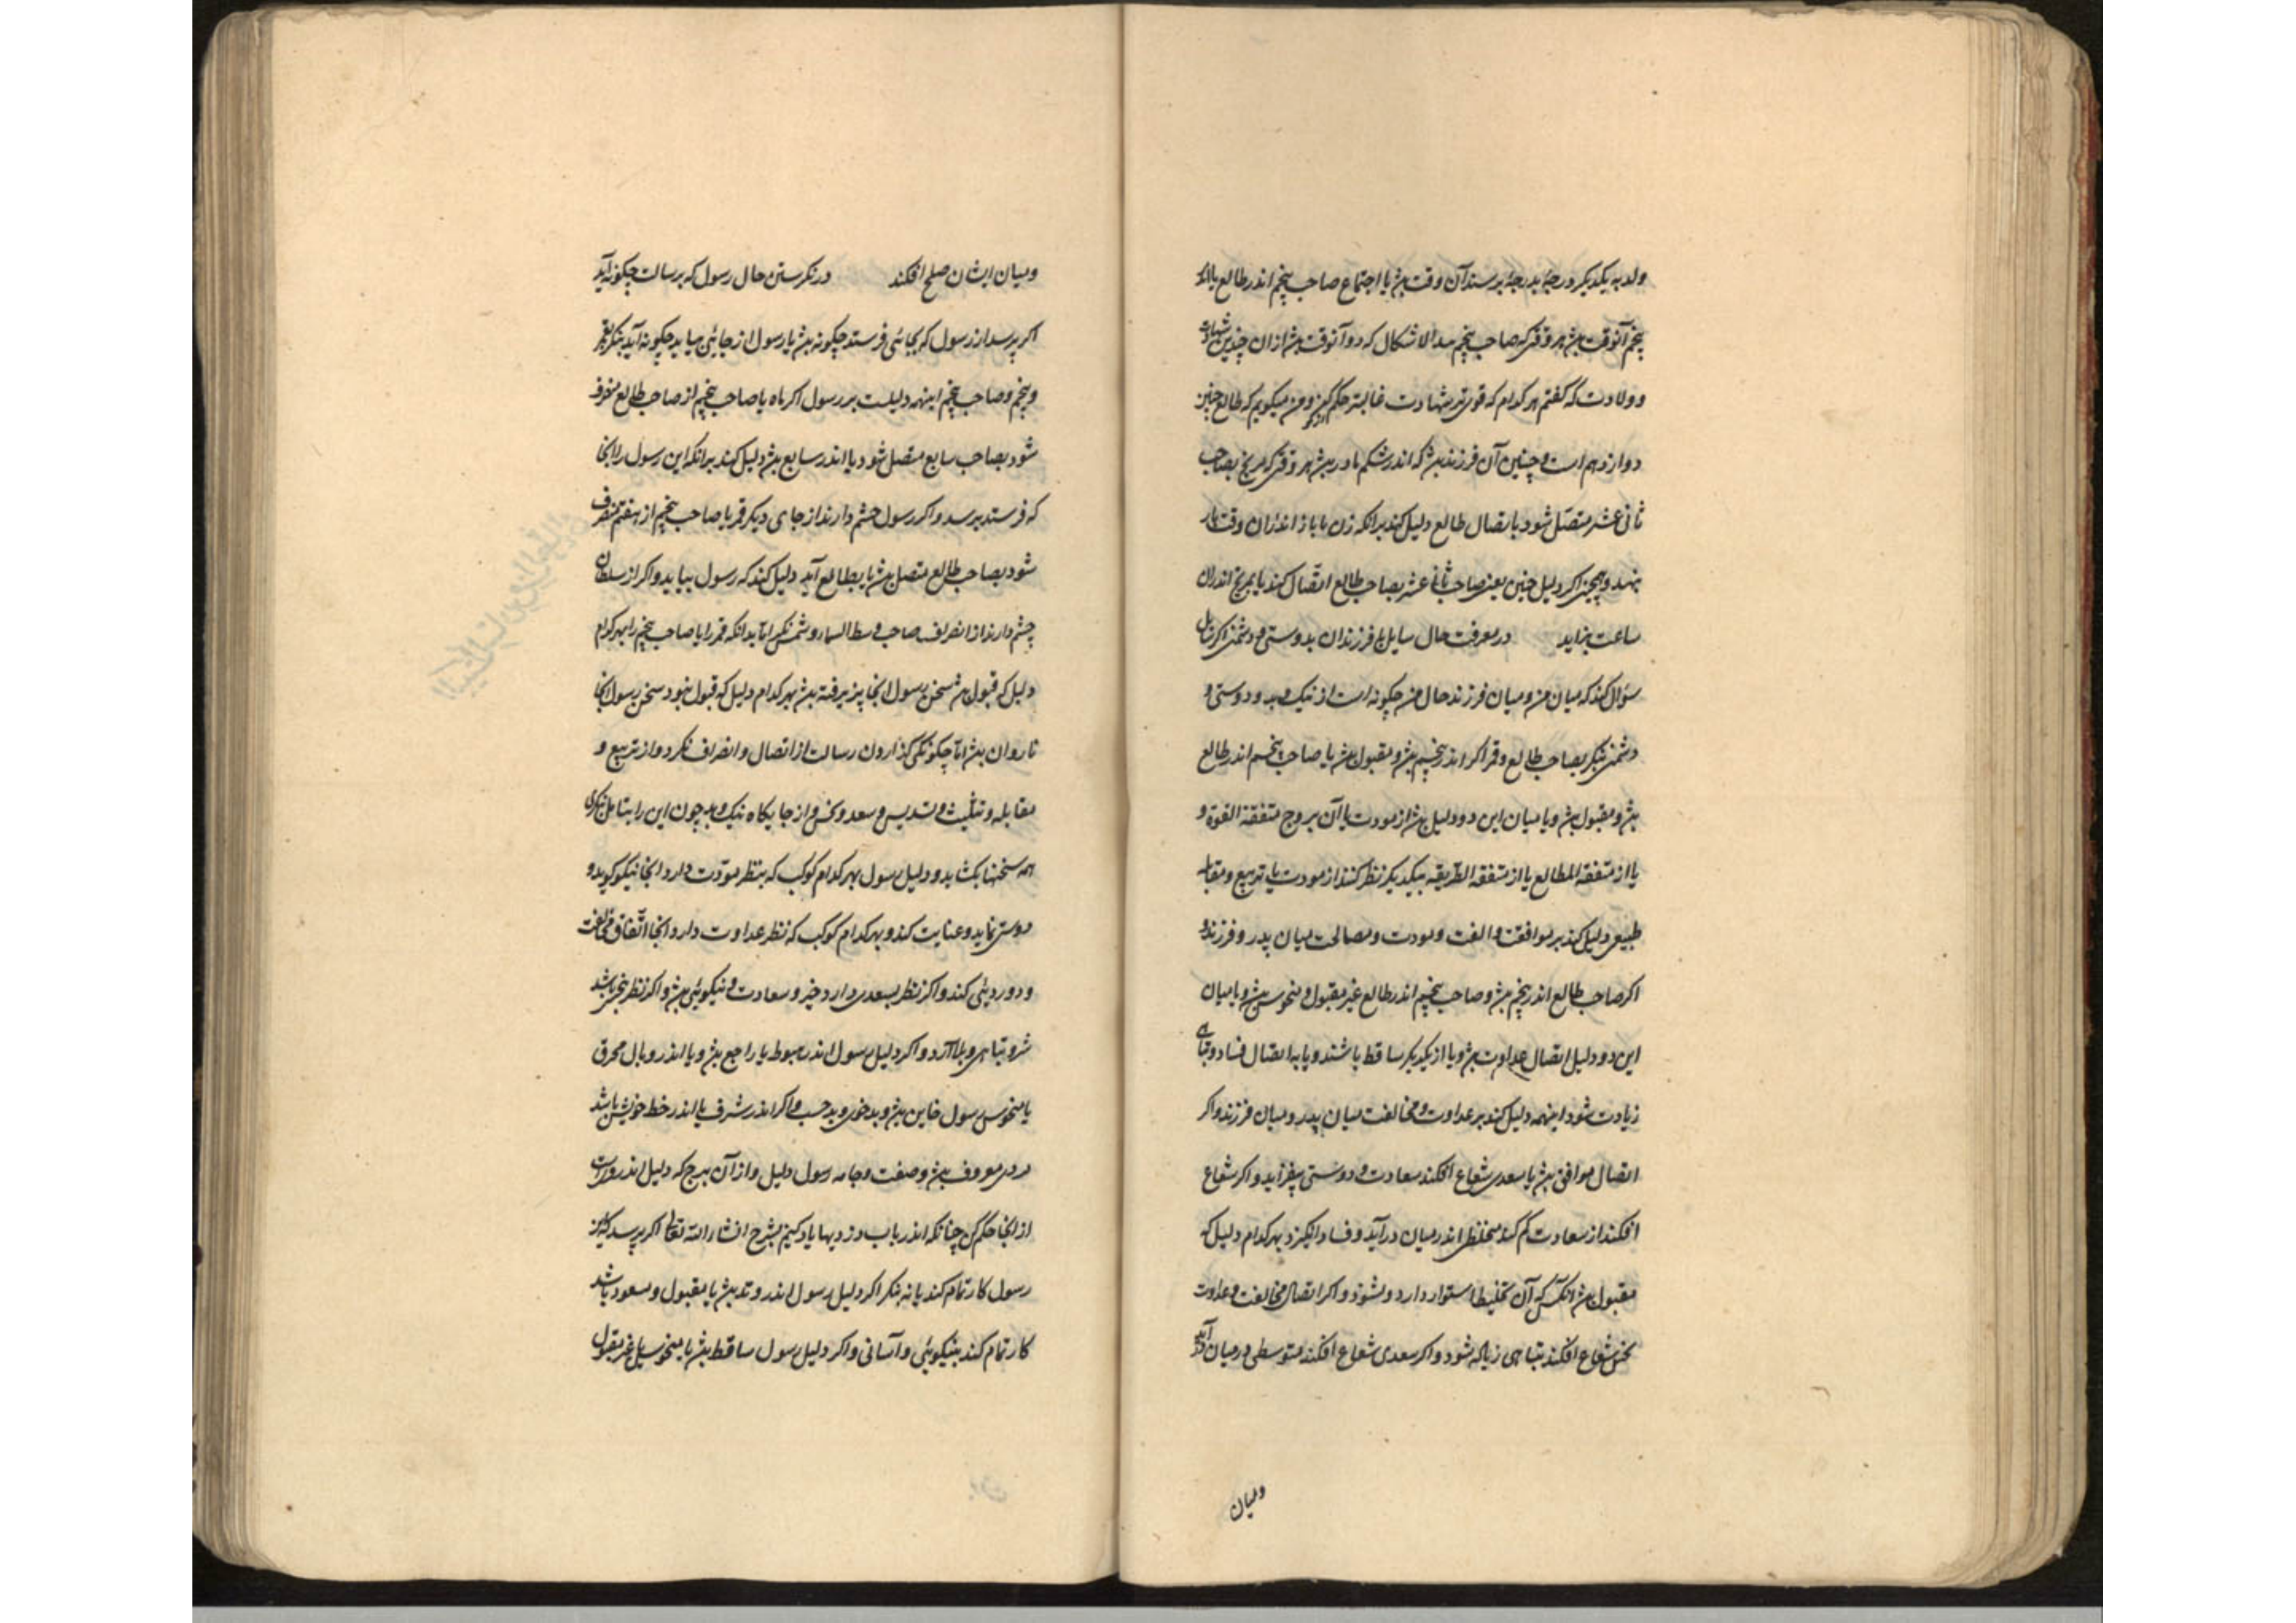 ولد به یکدیگر درجهٔ بدرجهٔ برسند آن وقت بش یا اجتماع صاحب پنجم اندر طالع یا اندر
پنجم آنوقت بش هر وقتی که صاحب پنجم الاشکال که دو آنوقت بش از ان چندین شهادت
وولادت که گفتم هر کدام که قوی تر بشهادت غالبتر حکم کن ومن میکویم که طالع جنین
دوازدهم است وچنین آن فرزند بش که اندر شکم مادر بش هر وقتی که مریخ بصاحب
ثانی عشر متصل شود یا بصال طالع دلیل کند برانکه زن بابا از اندران وقت بار
بنهد وهمچنین اکر دلیل جنین یعنی صاحب ثانی عشر بصاحب طالع اتصال کند یا بمریخ اندران
ساعت بزاید در معرفت حال سایل با فرزندان بدوستی و دشمنی اکر سایل
سؤال کند که میان من ومیان فرزند حال من چکونه است از نیک وبد و دوستی و
دشمنی بنکر بصاحب طالع وقمر اکر اندر پنجم بش ومقبول بش یا صاحب پنجم اندر طالع
بش ومقبول بش ویا میان این دو دلیل بش از مودت یا آن بروج متفقة القوة و
یا از متفقة المطالع یا از متفقة الطریقه بیکدیکر نظر کنند از مودت یا تربیع ومقابله
طبیعی دلیل کند بر موافقت والفت ومودت ومصالحت میان پدر وفرزند و
اکر صاحب طالع اندر پنجم بش وصاحب پنجم اندر طالع غیر مقبول ومنحوس بش ویا میان
این دو دلیل اتصال عداوت بش ویا از یکدیکر ساقط باشند ویا به اتصال فساد وتباهی
زیادت شود اینهمه دلیل کند بر عداوت ومخالفت میان پدر ومیان فرزند واکر
اتصال موافق بش یا سعدی شعاع افکند سعادت ودوستی بیفزاید واکر شعاع
افکند از سعادت کم کند مخلطی اندر میان درآید وفساد انکیزد بهر کدام دلیل که
مقبول بش آنکس که آن تخلیط استوار دارد وبشنود واکر اتصال مخالفت وعداوت
نحس شعاع افکند تباهی زیاده شود واکر سعدی شعاع افکند متوسطی در میان آید
ومیان
ومیان ایشان صلح افکند در نکرستن حال رسول که برسالت چکونه آید
اکر پرسد از رسول که بجائی فرستد چکونه بش یا رسول از جائی میاید چکونه آید بنکر بقمر
وپنجم وصاحب پنجم اینهمه دلیلست بر رسول اکر ماه یا صاحب پنجم از صاحب طالع منصرف
شود بصاحب سابع متصل شود یا اندر سابع بش دلیل کند برانکه این رسول را آنجا
که فرستد برسد واکر رسول چشم دارند از جای دیکر قمر یا صاحب پنجم از هفتم منصرف
شود بصاحب طالع متصل بش یا بطالع آید دلیل کند که رسول بیاید واکر از سلطان
چشم دارند از انصراف صاحب وسط السما وشمس نکر اما بدانکه قمر را یا صاحب پنجم را بهر کدام
دلیل که قبول بش سخن رسول آنجا پذیرفته بش بهر کدام دلیل که قبول نبود سخن رسول آنجا
ناروان بش اما چکونکی کذاردن رسالت از اتصال وانصراف نکرد واز تربیع و
مقابله وتثلیث وتسدیس وسعد ونحس واز جایکاه نیک وبد چون این را بتامل نکری
همه سخنها بکشاید ودلیل رسول بهر کدام کوکب که بنظر مودت دارد آنجا نیکو کوید و
دوستی نماید وعنایت کند وبهر کدام کوکب که نظر عداوت دارد آنجا اتفاق مخالفت
ودوروئی کند واکر نظر بسعدی دارد خیر وسعادت ونیکوئی بش واکر نظر بنحس باشد
شر وتباهی وبلا آرد واکر دلیل رسول اندر هبوط یا راجع بش ویا اندر وبال محرق
یا منحوس رسول خاین بش وبد خوی وبد حسب واکر اندر شرف یا اندر خط خویش باشد
مردی معروف بش وصفت وجامه رسول دلیل واز آن برج که دلیل اندروست
از آنجا حکم کن چنانکه اندر باب دزدیها یاد کنیم بشرح انشاء الله تعالی اکر پرسد که این
رسول کار تمام کند یا نه بنکر اکر دلیل رسول اندر وتد بش یا مقبول ومسعود باشد
کار تمام کند بنیکوئی وآسانی واکر دلیل رسول ساقط بش یا منحوس یا غیر مقبول